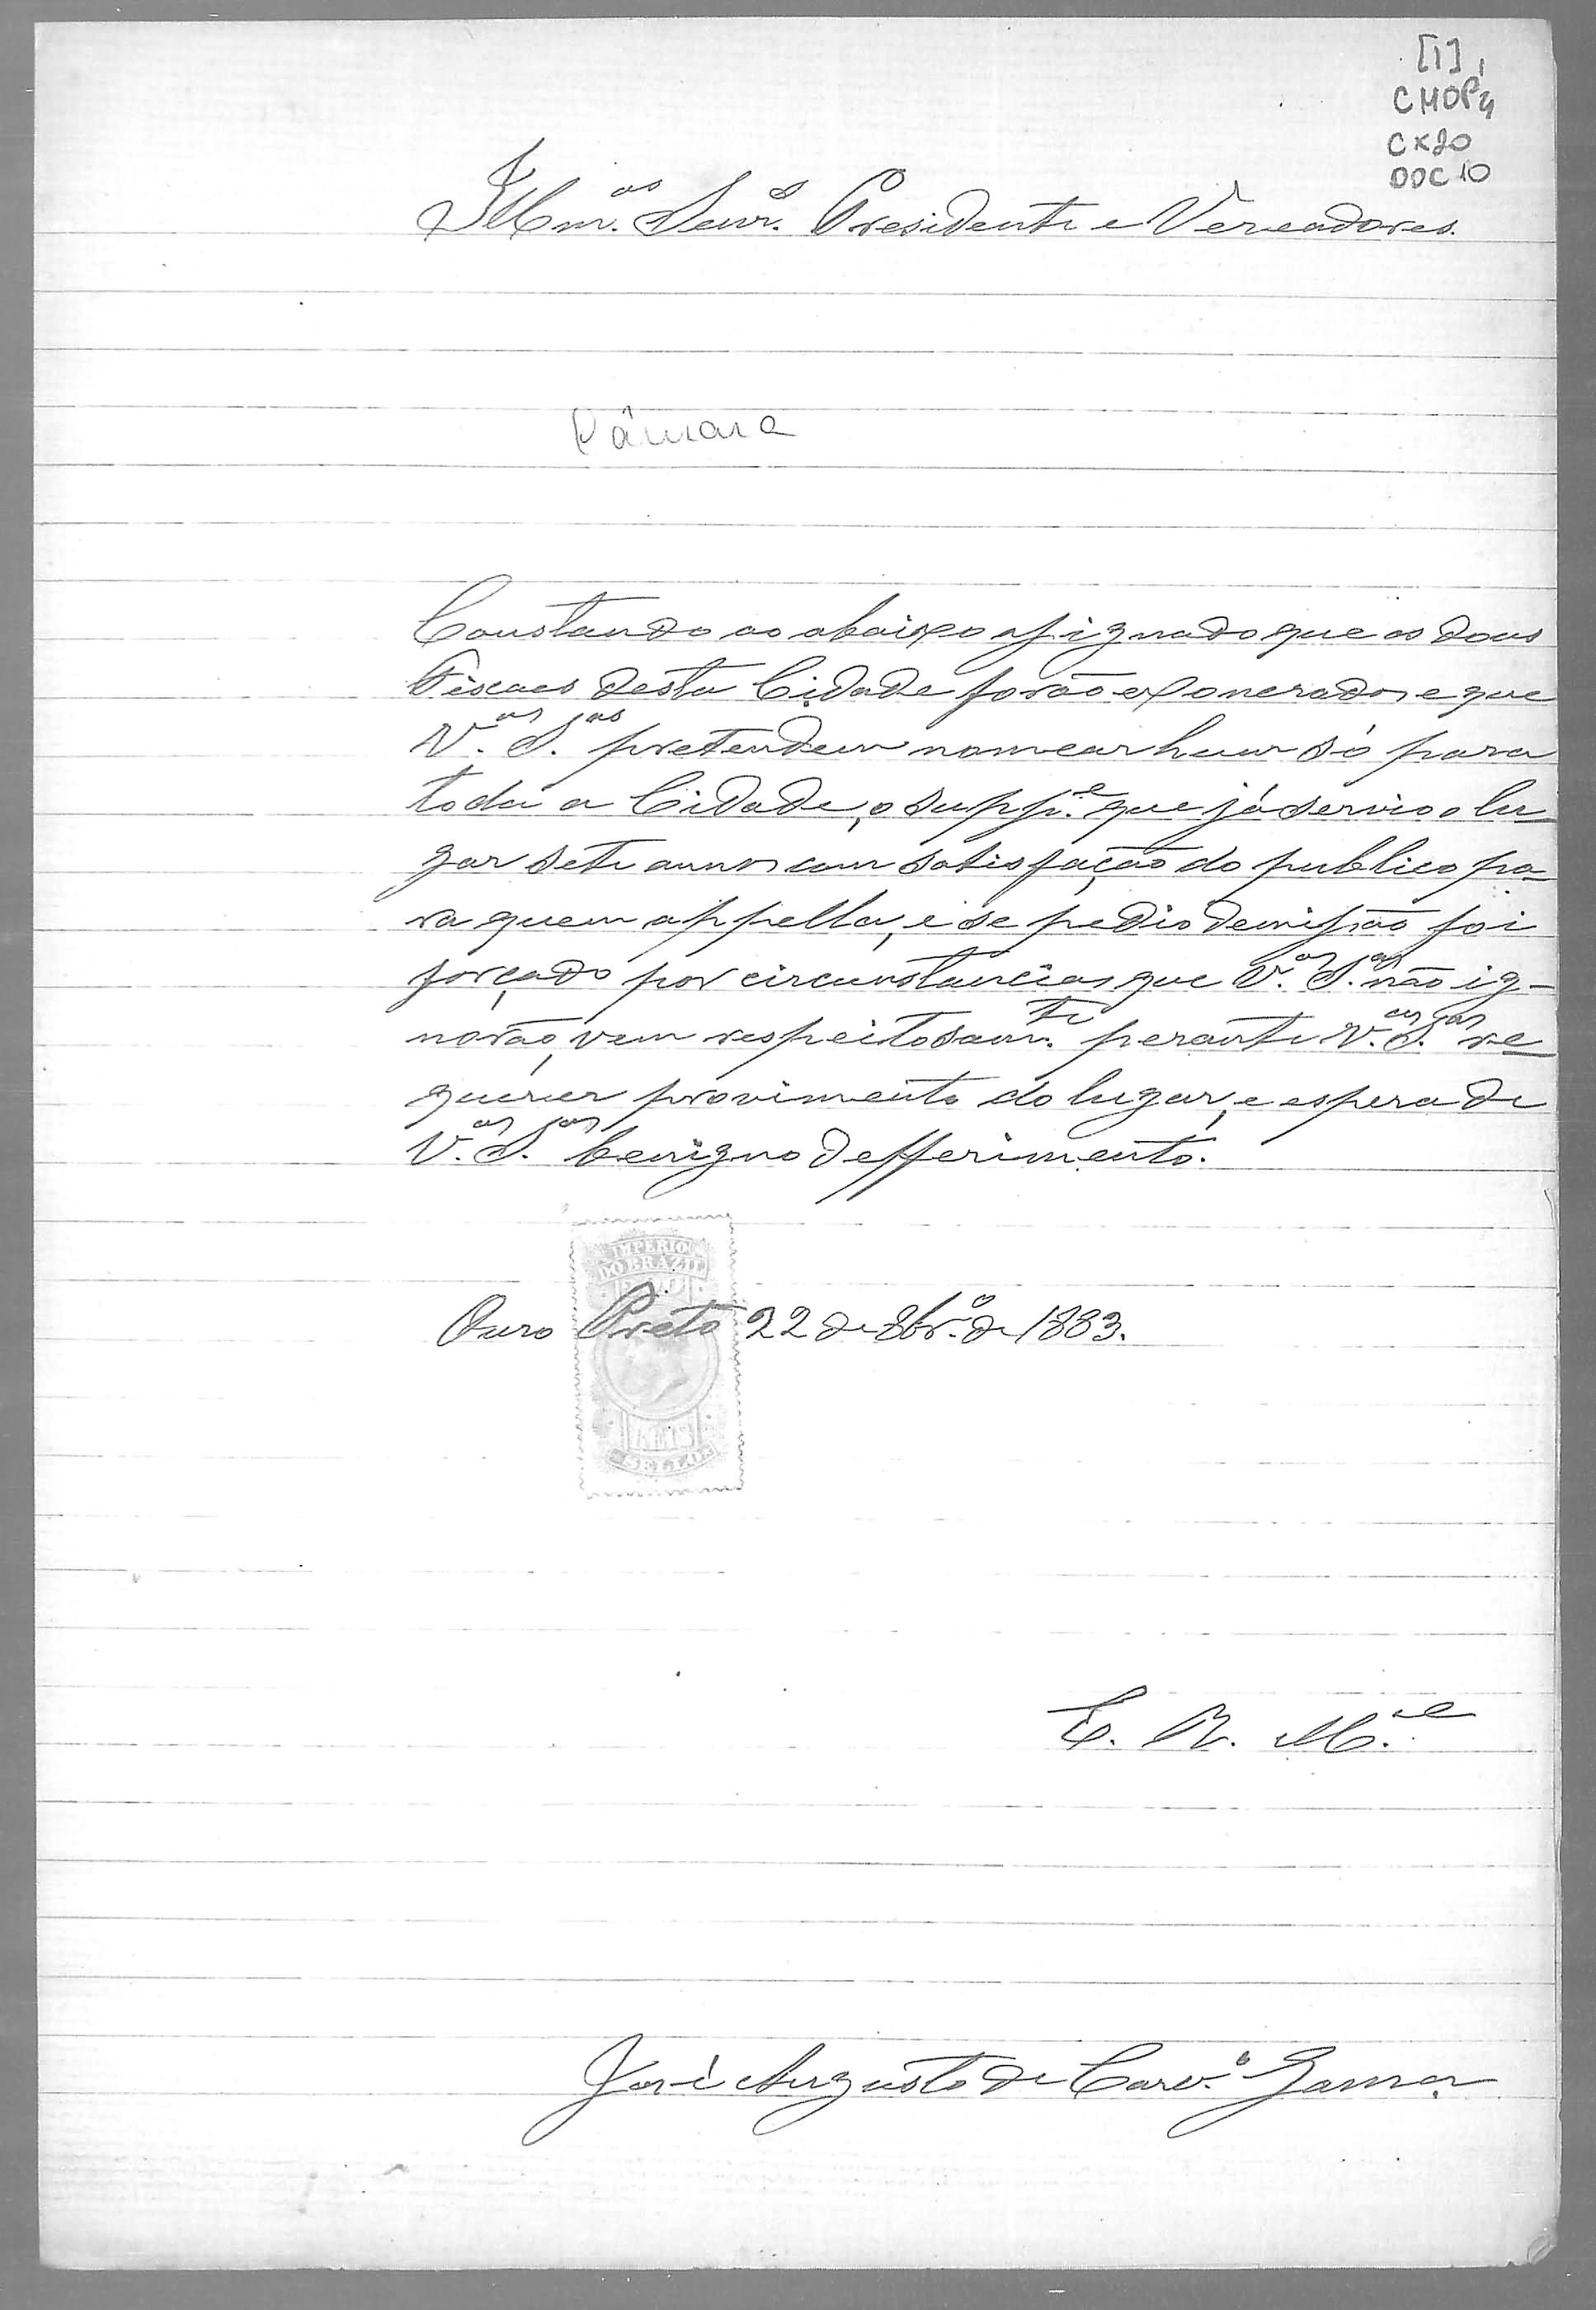 [1]
CMOP
CX20
DOC 10
Illmos Senrs Presidente e Vereadores.
Câmara
Constando ao abaixo assignado que os dous
Fiscaes desta Cidade forão exonerados e que
V.as S.as pretendem nomear hum só para
toda a Cidade, o supp.e que já servio o lu-
gar sete annos com satisfação do publico pa-
ra quem appella, e se pedio demissão foi
forçado por circunstancias que V.as S.as não ig-
norão, vem respeitosam.te perante V.as S.as re-
querer provimento do lugar, e espera de
V.as S.as benigno defferimento.
IMPERIO
DO BRAZIL
200
REIS
SELLO
Ouro Preto 22 de 8br.o de 1883.
E. R. M.ce
José Augusto de Carv.o Gama